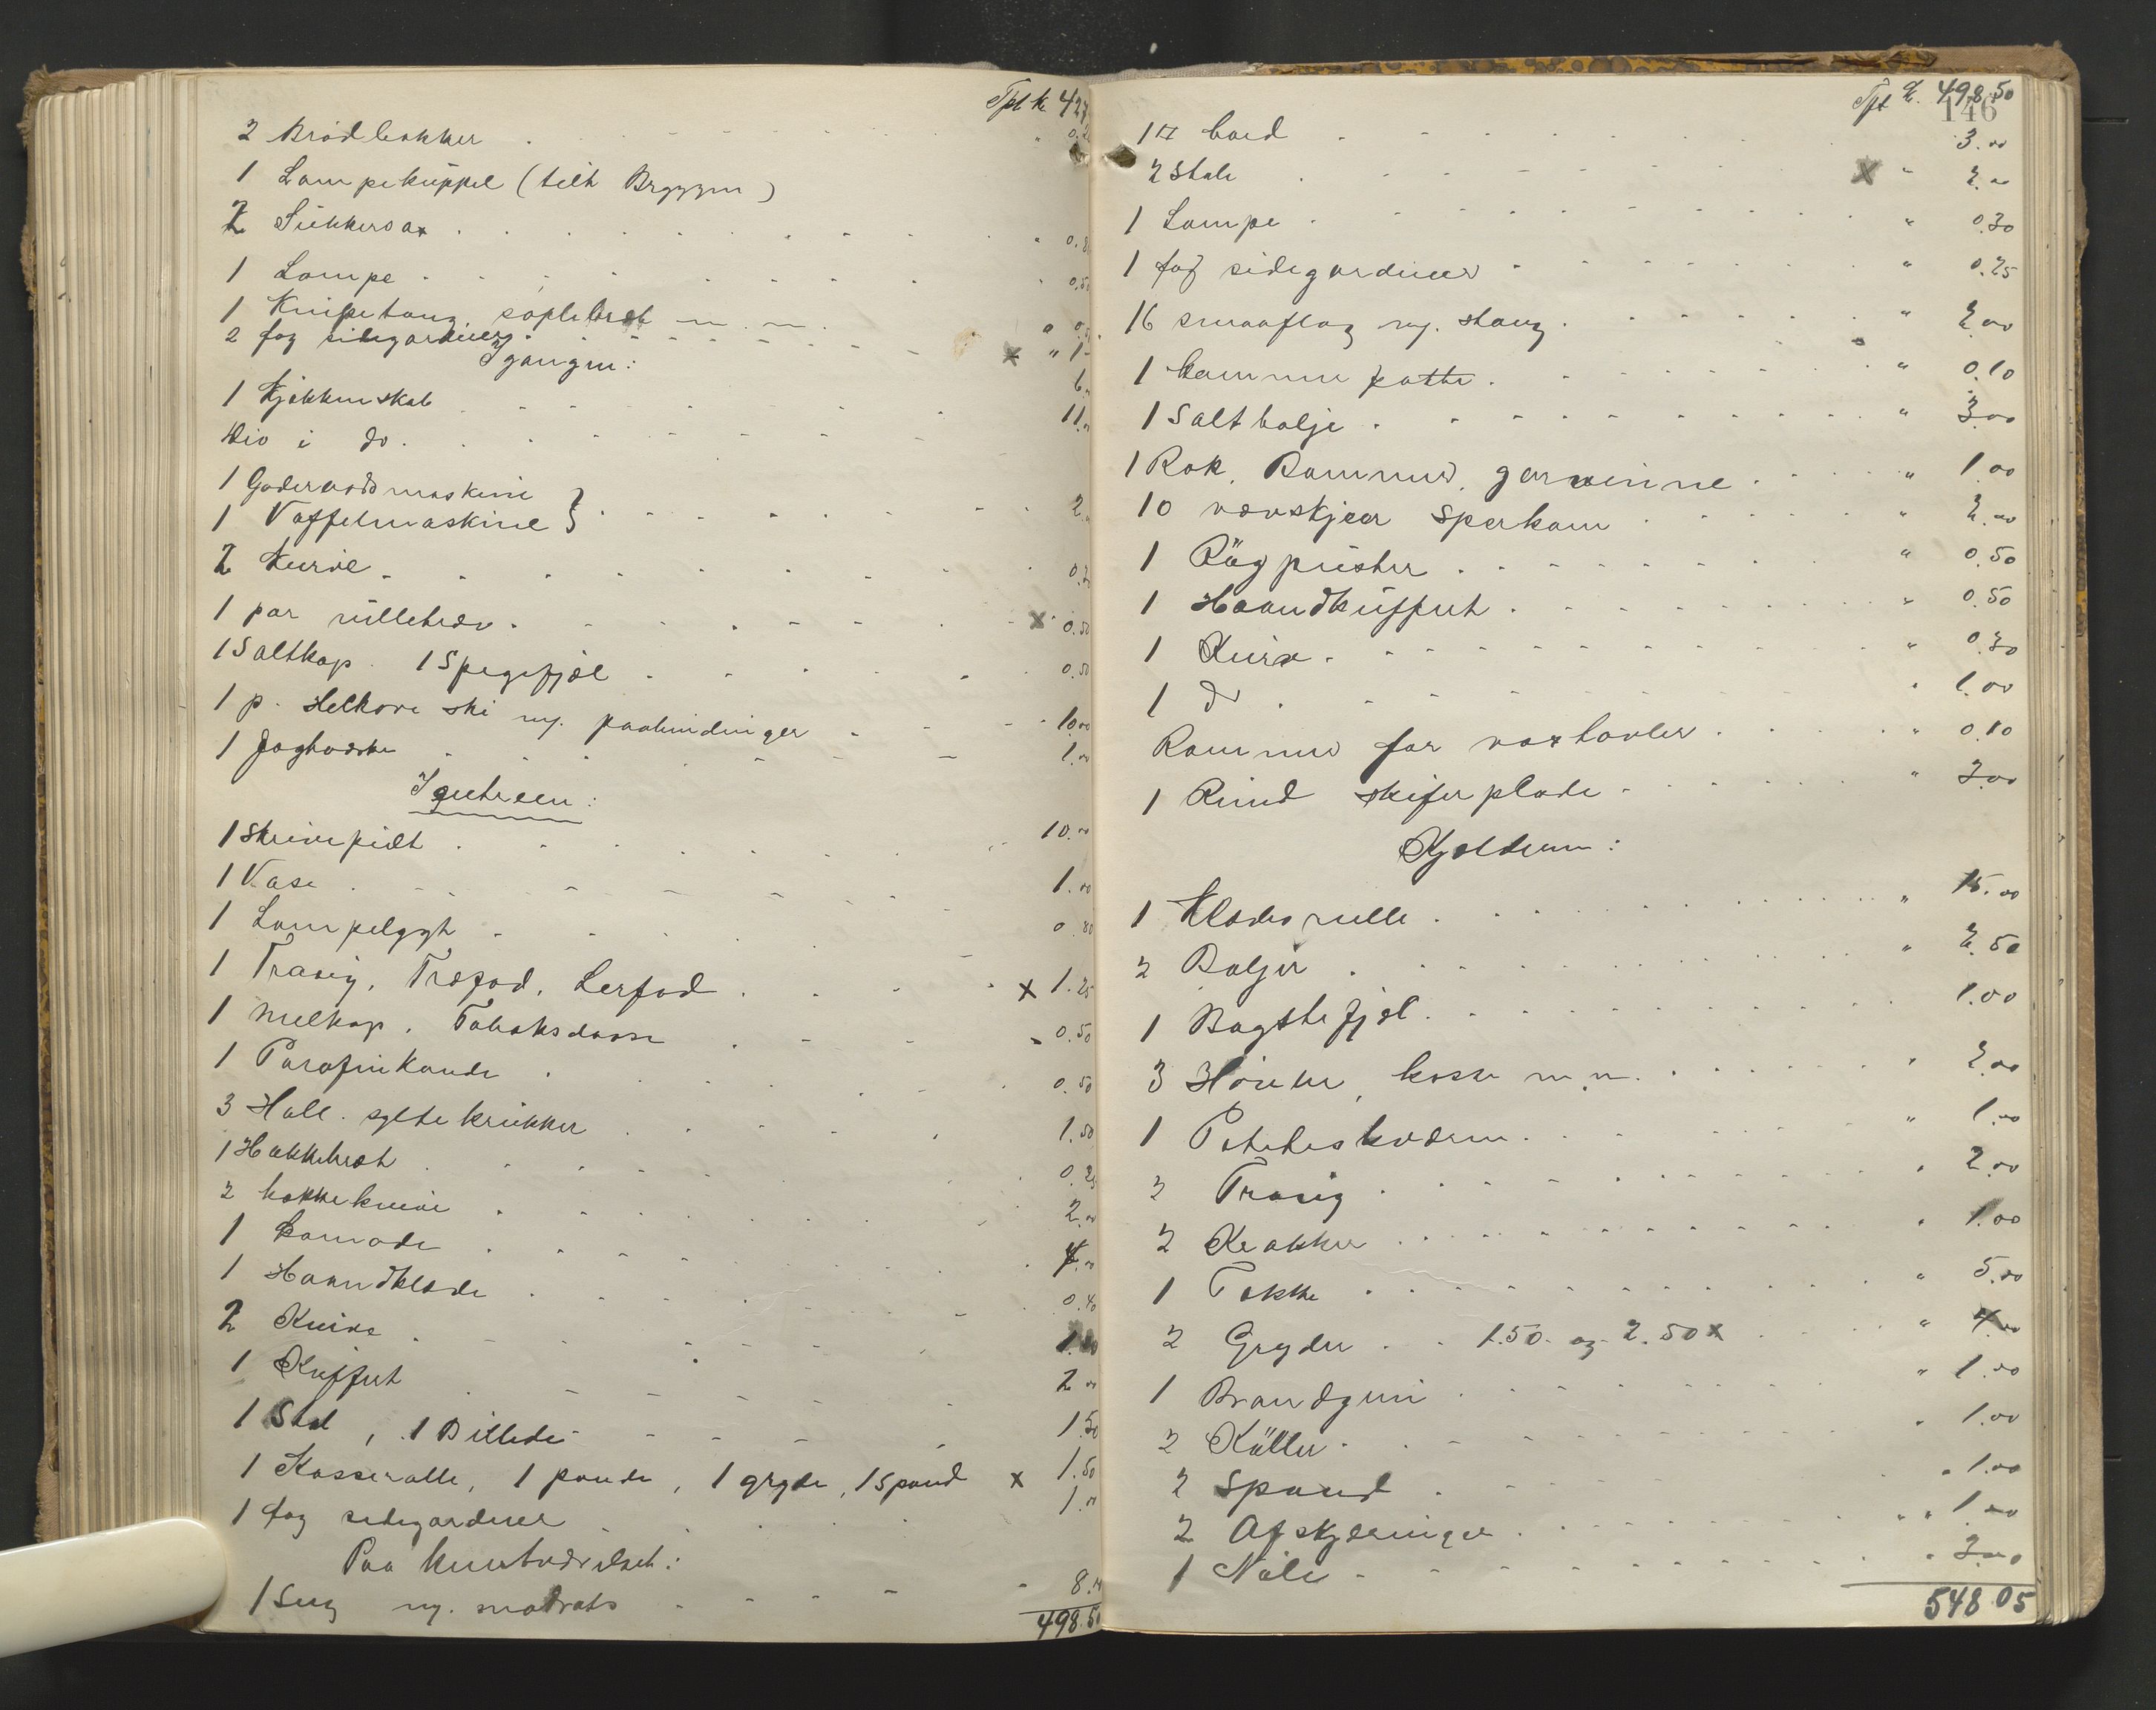 Tpt k 427
2 Brödbakker . 0.2
1 Lampekuppel (telt Bryggen)
2 Sukkersax . 0.8
1 Lampe . 0.50
1 Knibetang, sopelbret m. m.
2 fag sidegardiner . x " 1
I gangen: 6.
1 Kjøkkenskab 11.00
Div i do.
1 Goderaadsmaskine }
1 Vaffelmaskine } 2.
2 Kurve .
1 par rulletræer . x 0.50
1 Saltkop. 1 Spegefjæl . 0.50
1 p. Helkove ski m. paabindinger . 10.00
1 Jagtvæske 1.00
I gutreum:
1 Skrivepult . 10.00
1 Vase . 1.00
1 Lampelygt . 0.80
1 Trasig, Træfad, Lerfad . x 1.25
1 Melkop, Tobaksdaase . 0.50
1 Parafinkande . 0.50
3 Holl. syltekrukker . 1.50
1 Hakkebræt . 0.25
2 hakkeknive . 2.00
1 Komode . 4.00
1 Haandklæde . 0.40
2 Knive .
1 Kuffert 2.00
1 Stol, 1 Billede 1.50
1 Kasserolle, 1 pande, 1 gryde, 1 spand x 1.50
1 fag sidegardiner 1.00
Paa kvistværelset:
1 Seng m. madrats 8.00
498.50
Tpt k. 498.50
146
1 bord . 3.00
2 Stole . x " 2.00
1 Lampe . " 0.30
1 fag sidegardiner " 0.25
16 smaaflag m. stang . " 2.00
1 kamme potte . " 0.10
1 Saltbalje . " 3.00
1 Rok, Bommer, garnvinne . " 1.00
10 vævskjeer Sperkam " 2.00
1 Rögpuster . " 0.50
1 Haandkuffert . " 0.50
1 Kurv . " 0.30
1 do . " 1.00
Rammer for voxtavler . " 0.10
1 Rund skiferplade . " 3.00
Kjelderen:
1 Klædesrulle . " 15.00
2 Baljer . " 2.50
1 Bagstefjæl . 1.00
3 Hövler, kasse m. m. . " 2.00
1 Poteteskværn . " 1.00
2 Trasig . " 2.00
2 Krakker . " 1.00
1 Takke . " 5.00
2 Gryder . 1.50 og 2.50 x " 4.00
1 Brandjern . " 1.00
2 Kütter . " 1.00
2 Spand . " 1.00
2 Afskjæringer . " 1.00
1 " 3.00
548.05